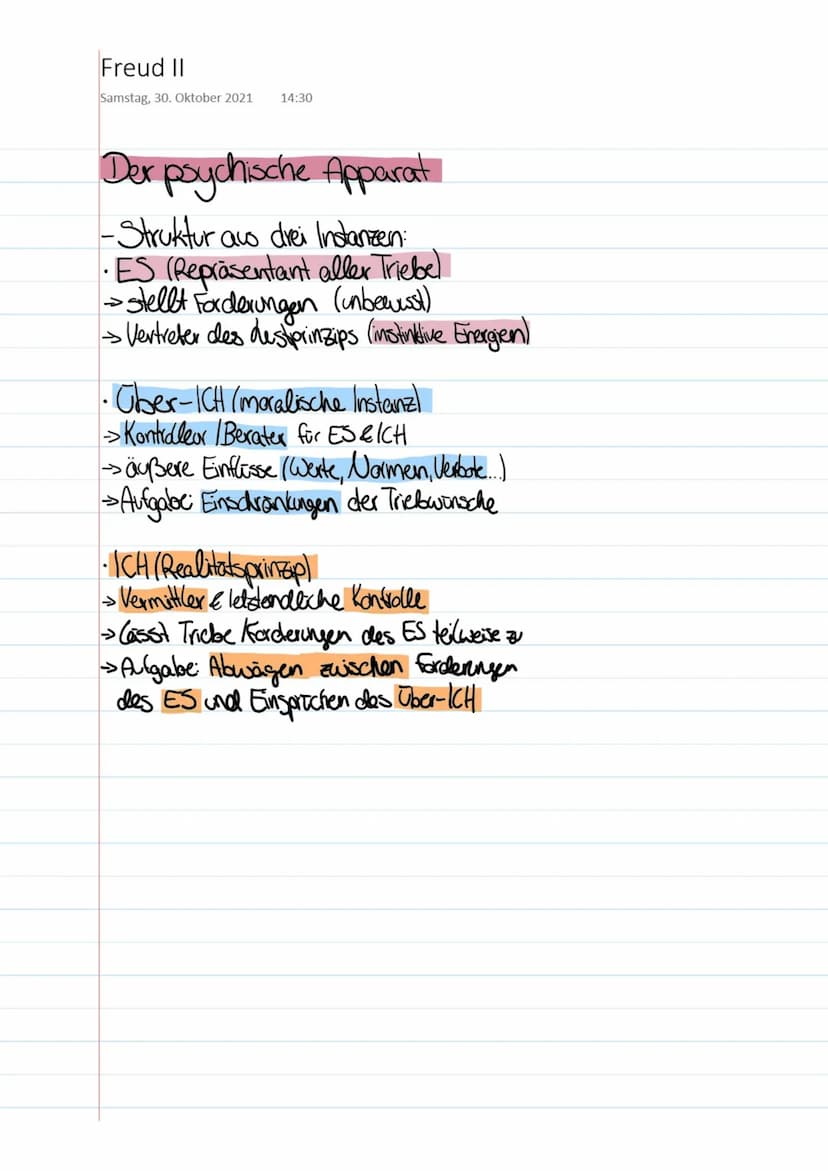 Freud II
Samstag, 30. Oktober 2021 14:30
Der psychische Apparat
- Struktur aus drei Instanzen:
· ES (Repräsentant aller Triebe)
→ stellt Forderungen (unbewusst)
→ Vertreter des Lustprinzips (instinktive Energien)
· Über-ICH (moralische Instanz)
→ Kontrolleur / Berater für ES & ICH
→ äußere Einflüsse (Werte, Normen, Verbote...)
→ Aufgabe: Einschränkungen der Triebwünsche
· ICH (Realitätsprinzip)
→ Vermittler & letztendliche Kontrolle
→ lässt Triebe / Forderungen des ES teilweise zu
→ Aufgabe: Abwägen zwischen Forderungen
des ES und Einsprüchen des Über-ICH